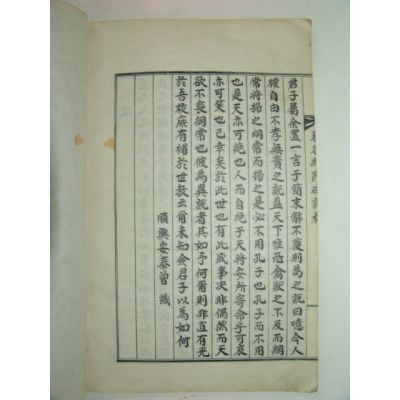 君子屬余置一言于簡末辭不獲則為之說曰噫今人
權自由不孝無貴之說盈天下唯恐禽獸之不及而綱
常將掃之綱常而掃之是必不用孔子也孔子而不用
也是天亦可絶也人而自絶于天將安所寄命乎可哀
亦可笑也已幸矣於此世也有此盛事决非偶然而天
欲不喪綱常也彼為異說者其如予何爾則非直有光
於吾旋底有補於世敎云爾未知僉君子以為如何
順興安泰曾識